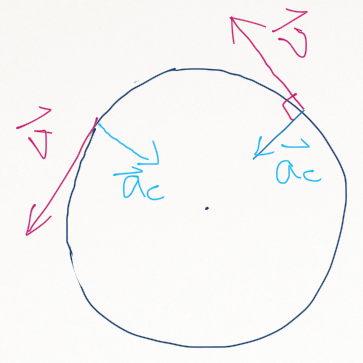 v⃗
v⃗
a⃗c
a⃗c